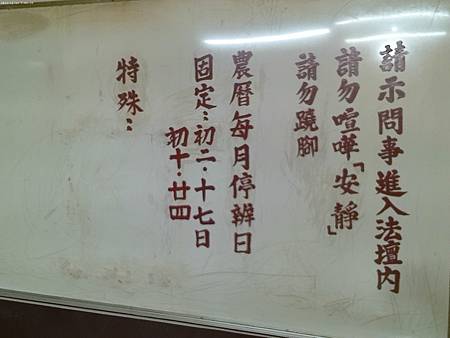 請示問事進入法壇內
請勿喧嘩「安靜」
請勿蹺腳
農曆每月停辦日
固定：初二．十七日
初十．廿四
特殊：